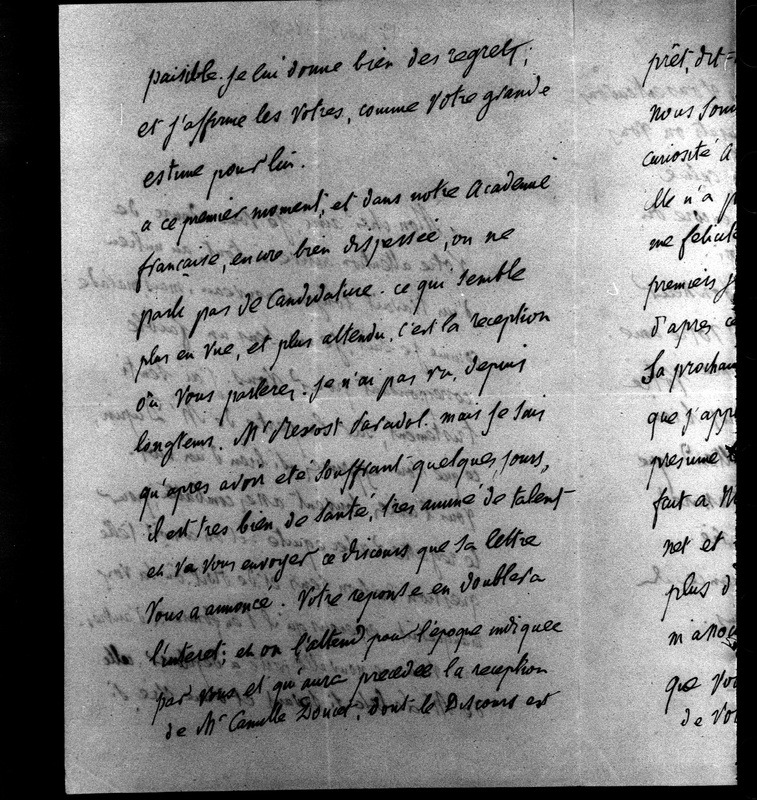 paisible. je lui donne bien des regrets;
et j'affirme les votres, comme votre grande
estime pour lui.
a ce premier moment, et dans notre Academie
française, encore bien dispersée, on ne
parle pas de Candidature. ce qui semble
plus en vue, et plus attendu, c'est la reception
où vous parlerez. je n'ai pas vu, depuis
longtems, Mr Prevost Paradol. mais je sais
qu'apres avoir eté souffrant quelques jours,
il est tres bien de santé, tres animé de talent
et va vous envoyer ce discours que sa lettre
vous a annoncé. Votre reponse en doublera
l'interet; et on l'attend pour l'époque indiquée
par vous et qu'aura precedée la reception
de Mr Camille Doucet, dont le Discours est
prêt, dit-
nous som
curiosité a
Elle n'a p
me felicit
premiers j
d'apres c
Sa prochain
que j'app
presume
fait a M
net et
plus d
m'a
que vou
de vo